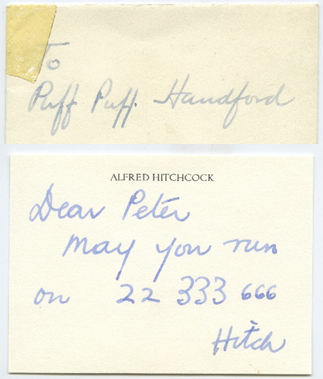 To
Puff Puff Handford
ALFRED HITCHCOCK
Dear Peter
May you run
on 22 333 666
Hitch